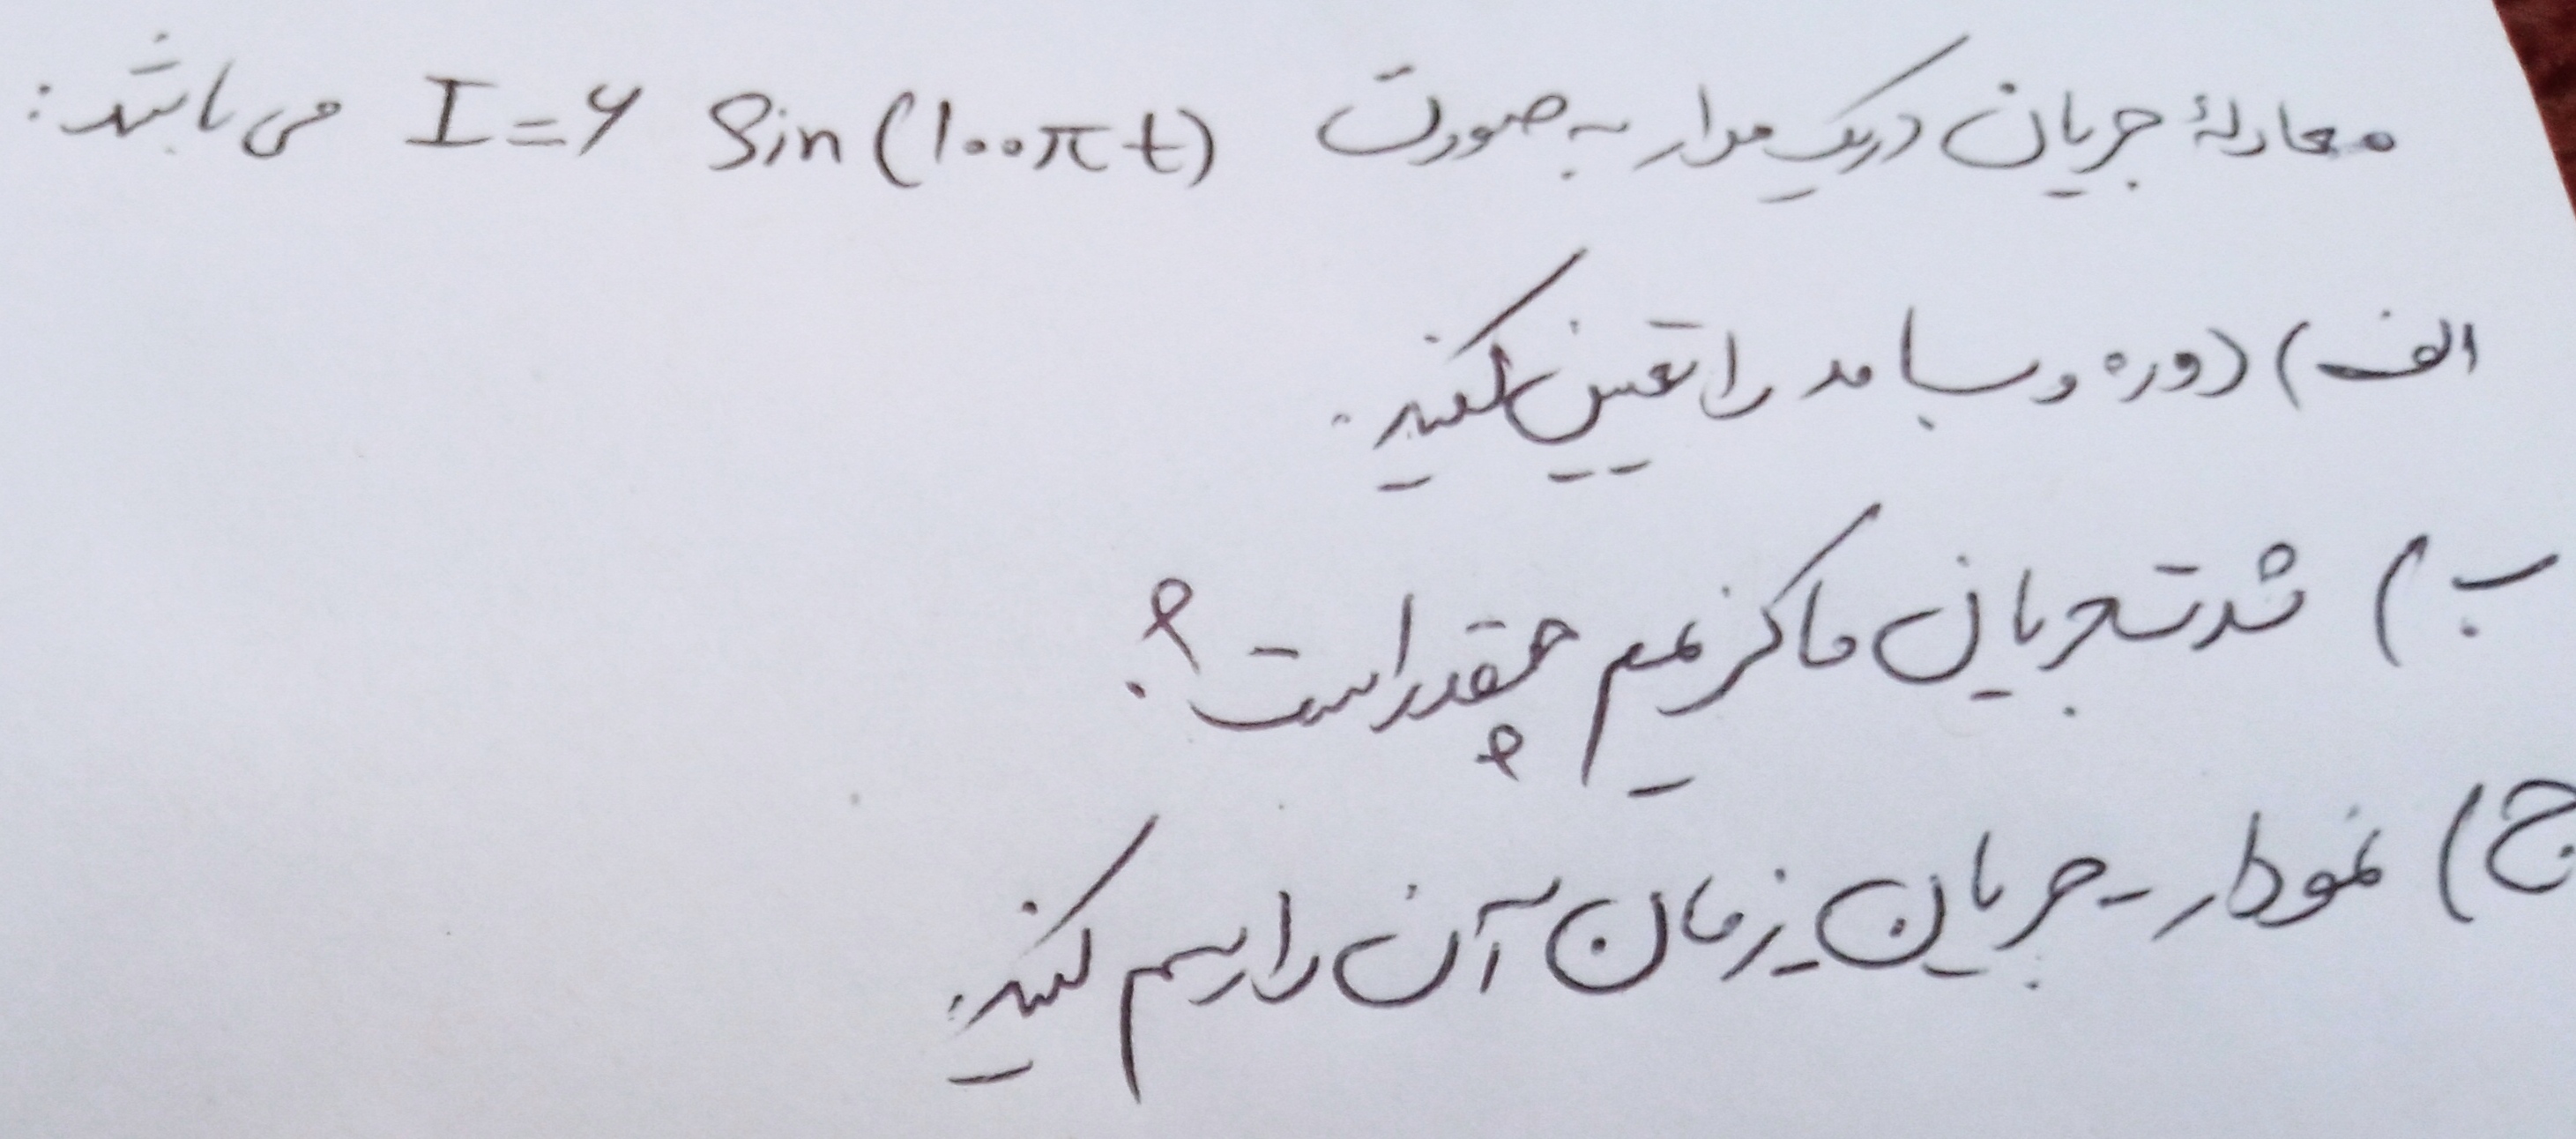 معادلهٔ جریان در یک مدار به صورت I = ۶ Sin(۱۰۰πt) می باشد:
الف) دوره و بسامد را تعیین کنید.
ب) شدت جریان ماکزیمم چقدر است؟
ج) نمودار - جریان زمان آن را رسم کنید.